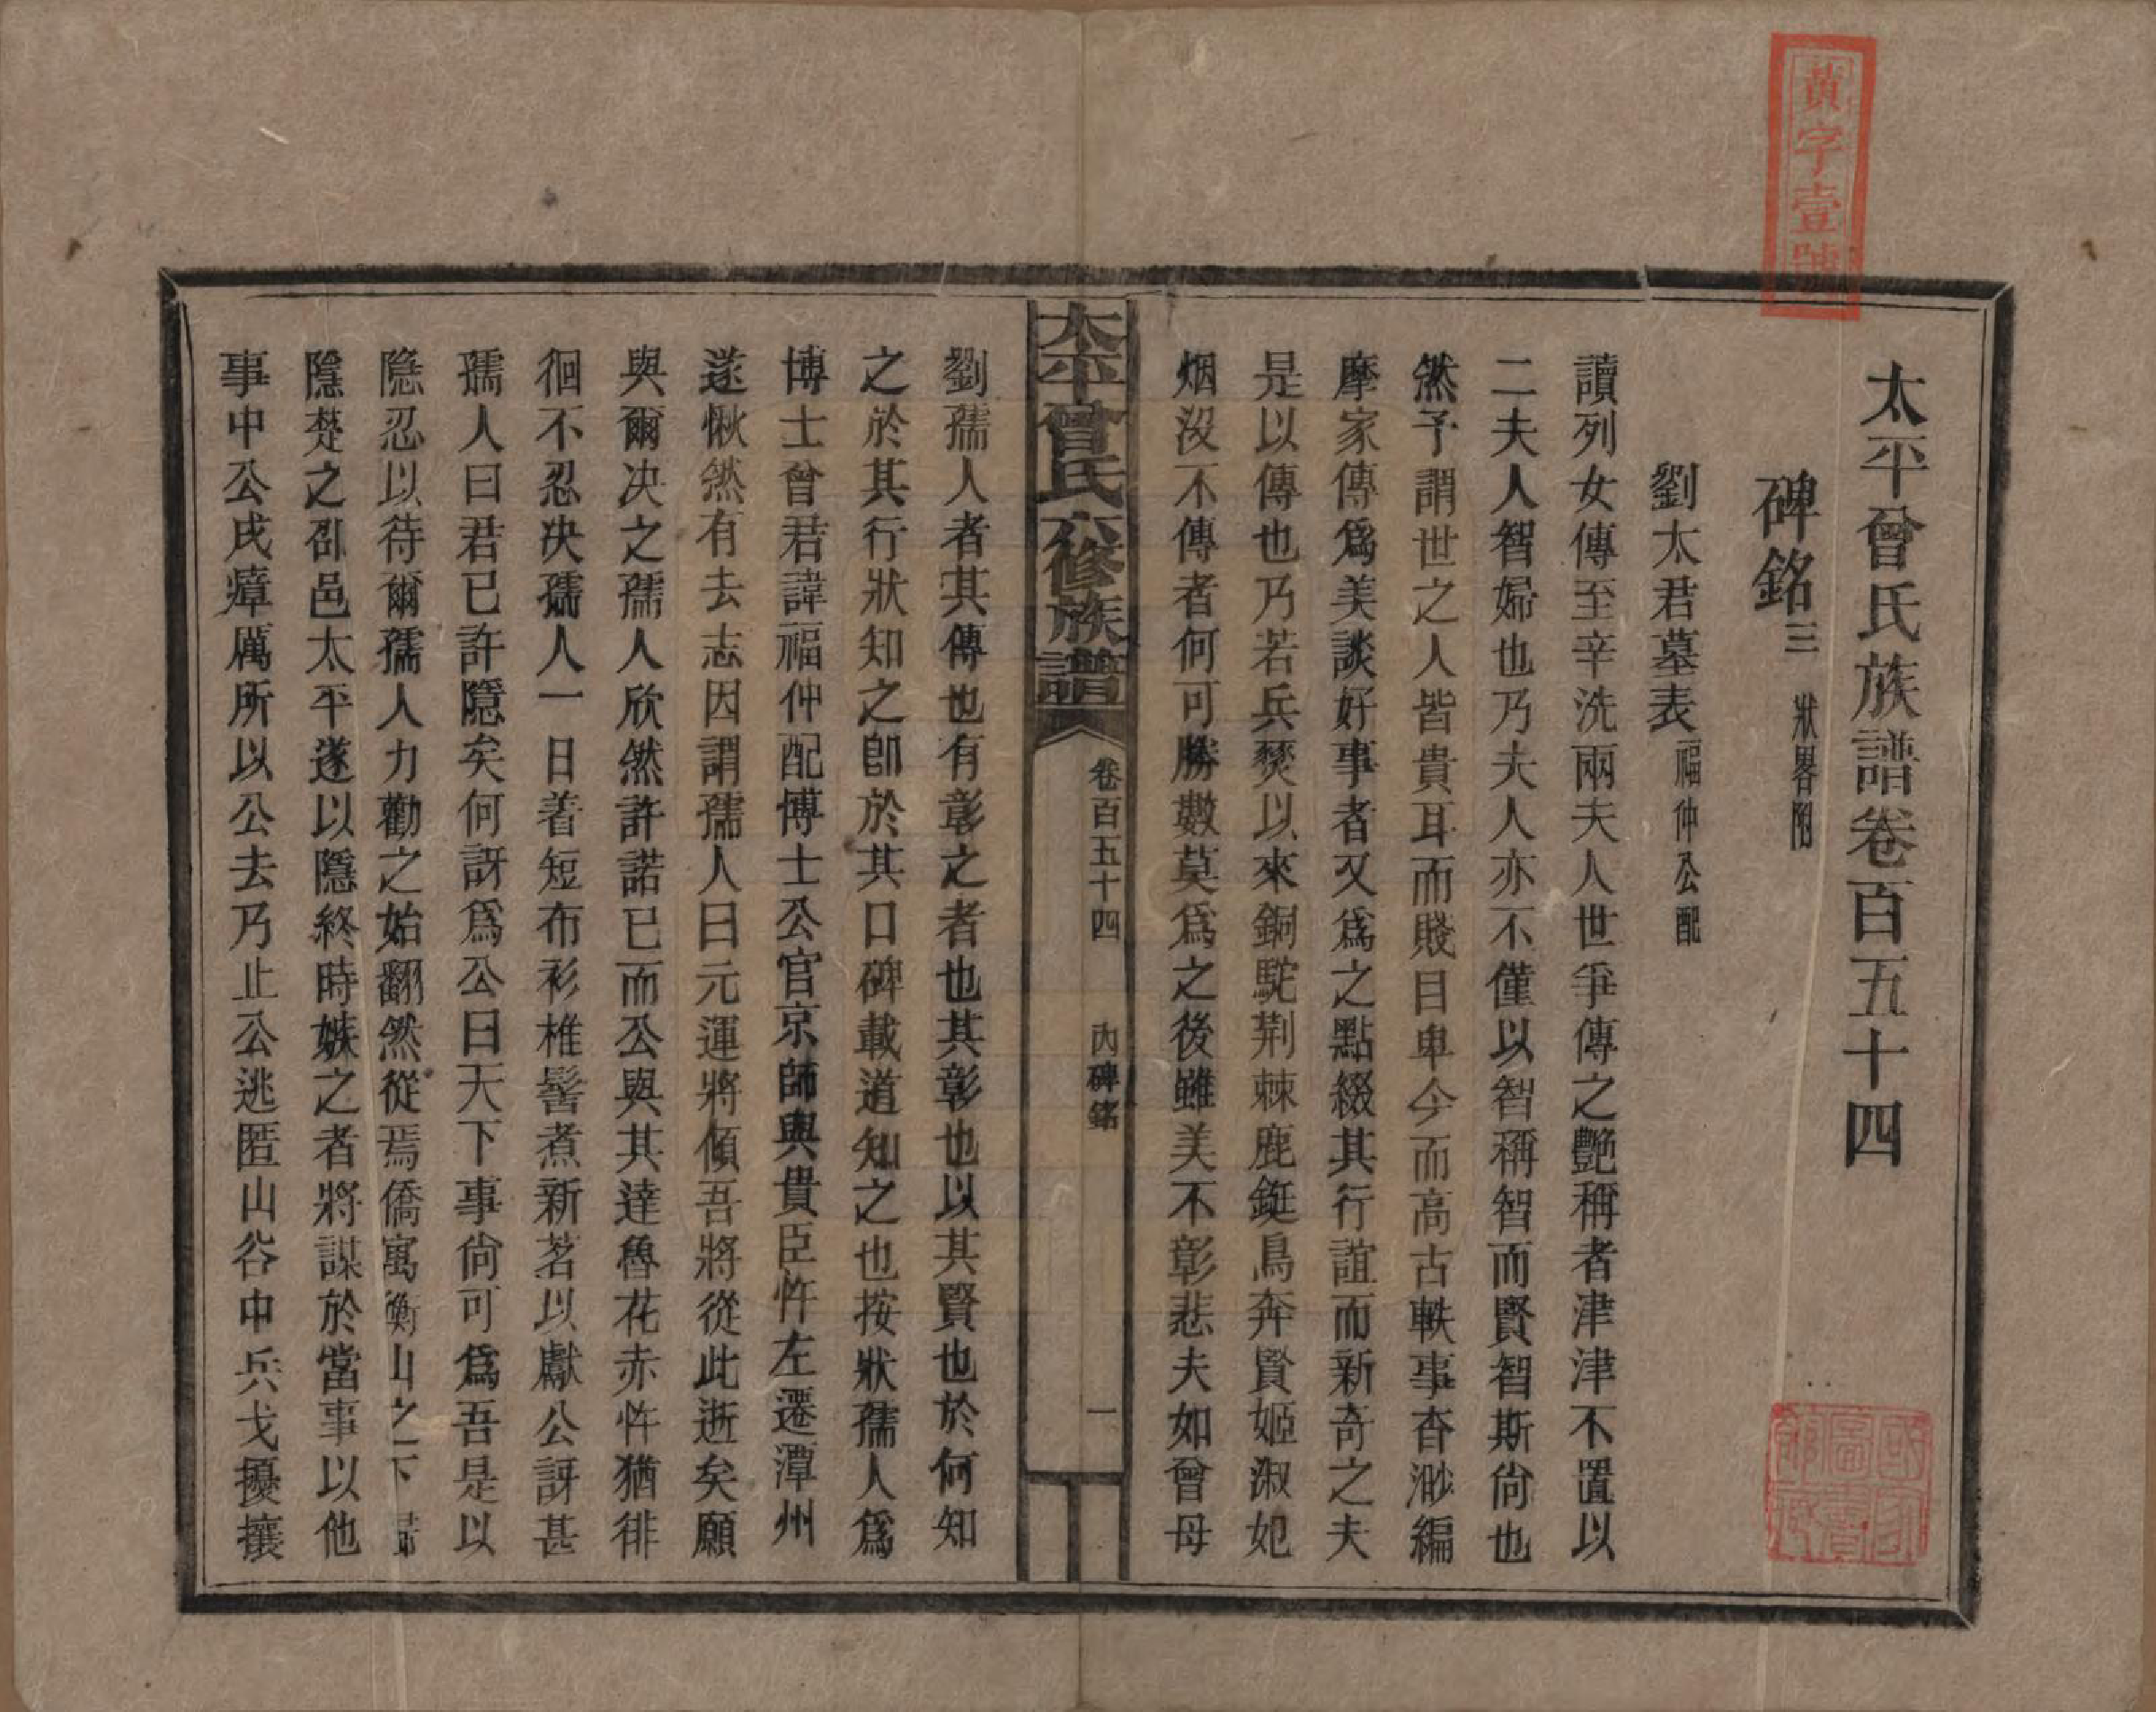 黃字壹號
太平曾氏族譜卷百五十四
碑銘三 狀畧附
劉太君墓表 福仲公配
讀列女傳至辛洗兩夫人世爭傳之艷稱者津津不置以
二夫人智婦也乃夫人亦不僅以智稱智而賢智斯尙也
然予謂世之人皆貴耳而賤目卑今而高古軼事杳渺編
摩家傳爲美談好事者又爲之點綴其行誼而新奇之夫
是以傳也乃若兵燹以來銅駝荆棘鹿鋌鳥奔賢姬淑妃
烟沒不傳者何可勝數莫爲之後雖美不彰悲夫如曾母
太平曾氏六修族譜 卷百五十四 內碑銘 一
劉孺人者其傳也有彰之者也其彰也以其賢也於何知
之於其行狀知之卽於其口碑載道知之也按狀孺人爲
博士曾君諱福仲配博士公官京師與貴臣忤左遷潭州
遂愀然有去志因謂孺人曰元運將傾吾將從此逝矣願
與爾决之孺人欣然許諾已而公與其達魯花赤忤猶徘
徊不忍决孺人一日着短布衫椎髻煮新茗以獻公訝甚
孺人曰君已許隱矣何訝爲公曰天下事尙可爲吾是以
隱忍以待爾孺人力勸之始翻然從焉僑寓衡山之下
隱楚之邵邑太平遂以隱終時嫉之者將謀於當事以他
事中公戍瘴厲所以公去乃止公逃匿山谷中兵戈擾攘
國家圖書館藏